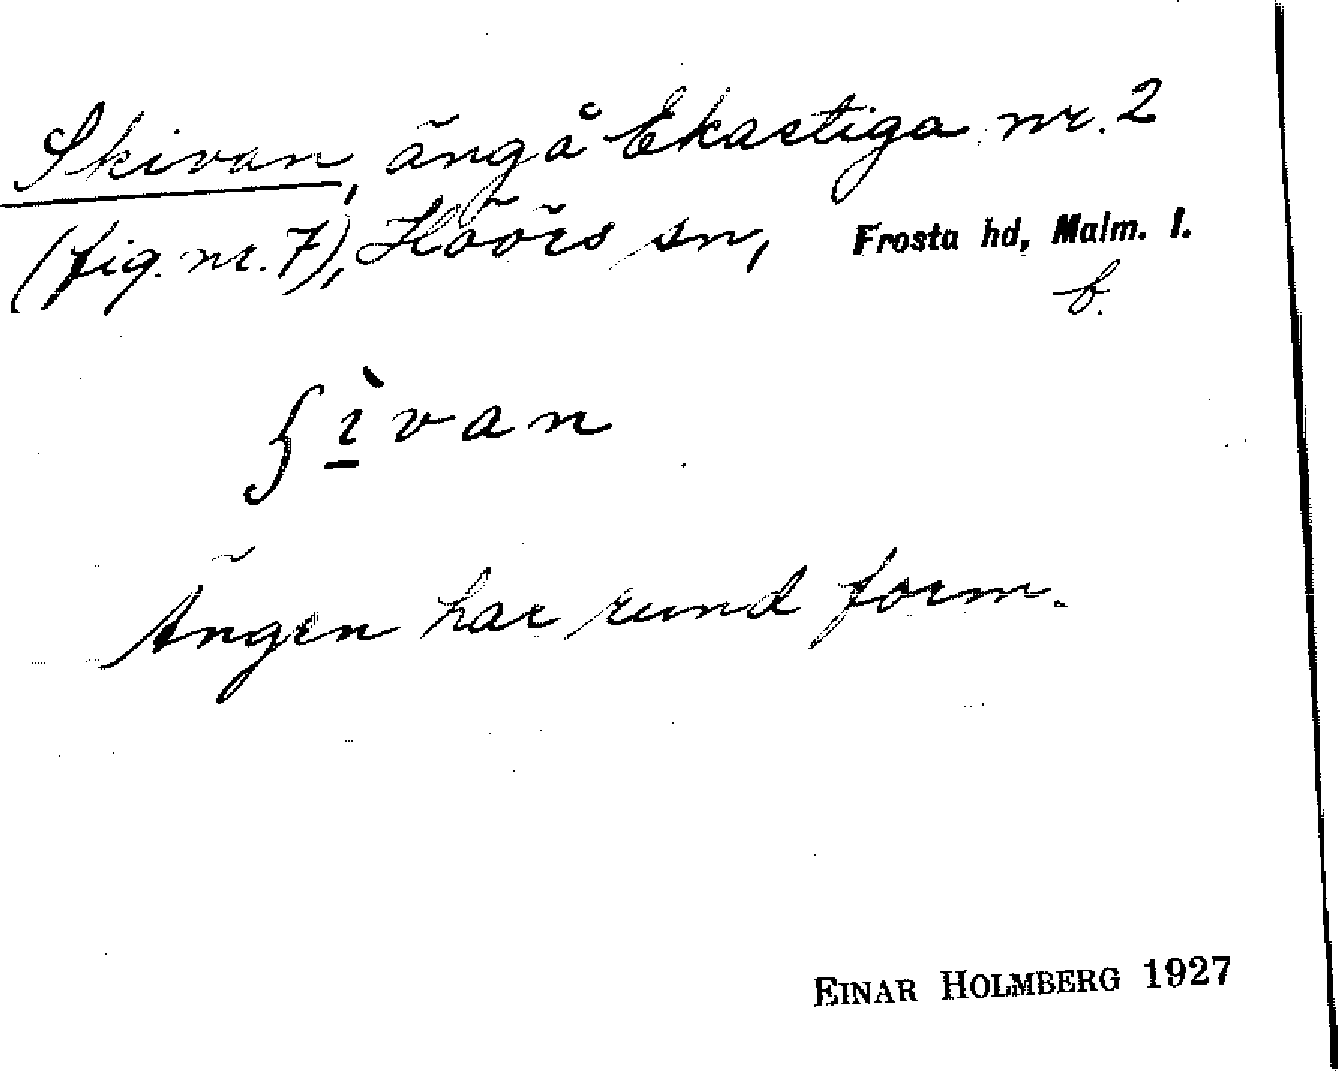 Skivan, äng å Ekastiga nr. 2
(fig. nr. 7), Höörs sn, Frosta hd, Malm. l.
b.
ʃìvan
Ängen har rund form.
EINAR HOLMBERG 1927